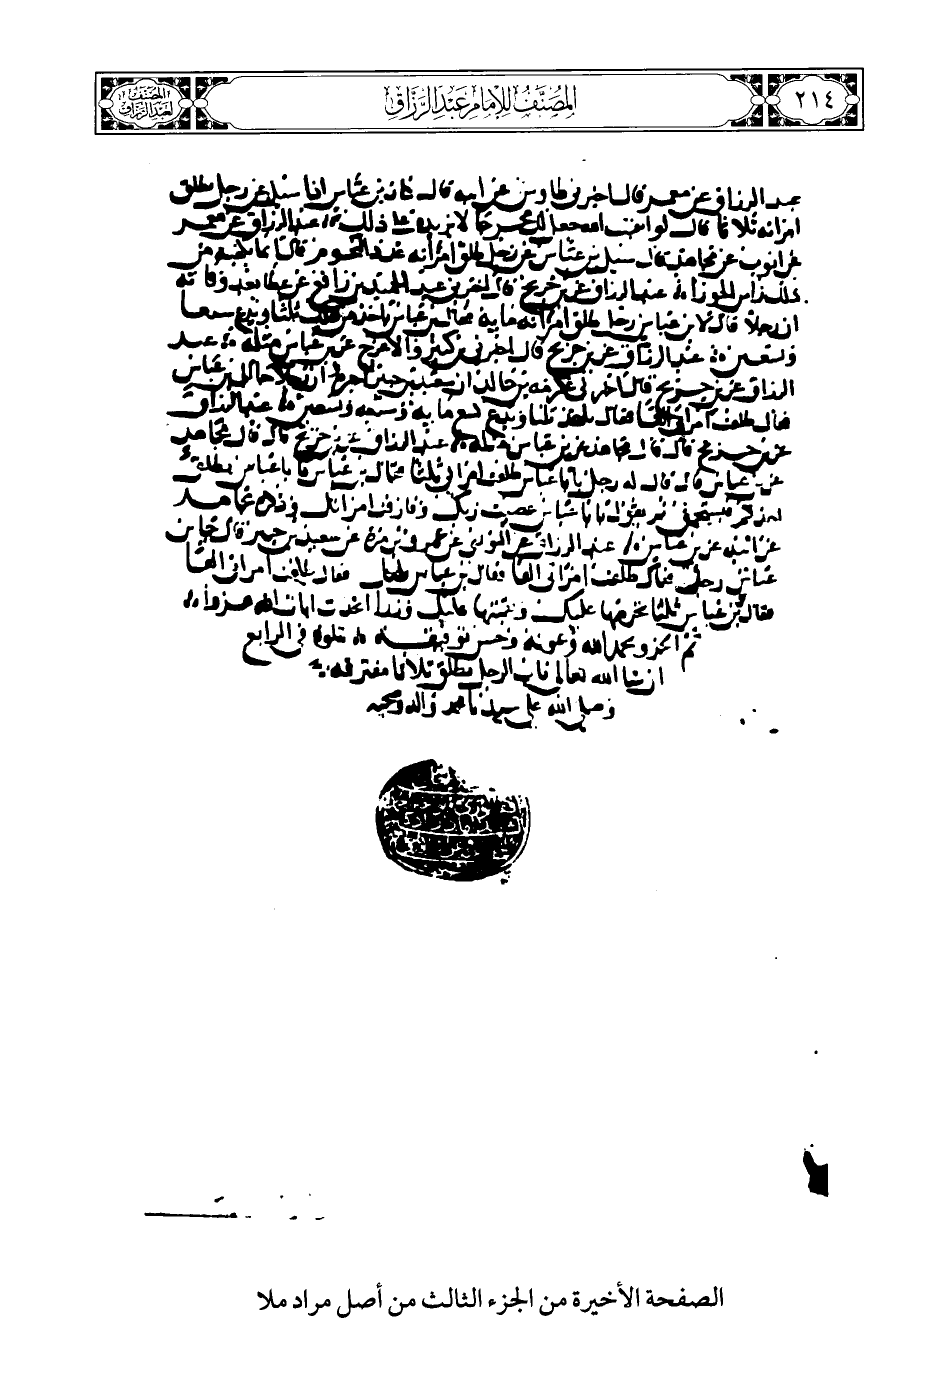 ٢١٤
المُصَنَّفُ لِلإِمَامِ عَبْدِ الرَّزَّاقِ
المصنف
لعبد الرزاق
عبد الرزاق عن معمر قال اخبرني طاوس عن ابيه قال كان بن عباس اذا سيل عن رجل يطلق
امراته ثلاثا قال لو اتقيت الله جعل لك مخرجا لا يزيده على ذلك عبد الرزاق عن معمر
عن ايوب عن مجاهد قال سيل بن عباس عن رجل طلق امراته عدد النجوم قال
ذلك راس الجوزاء عبد الرزاق عن بن جريج قال اخبرني عبد الحميد بن رافع عن عطا بعد وفاته
ان رجلا قال لابن عباس رجل طلق امراته مايه فقال بن عباس ياخذ من ذلك ثلثا ويدع سبعا
وتسعين عبد الرزاق عن بن جريج قال اخبرني بن كثير والاعرج عن بن عباس مثله عبد
الرزاق عن بن جريج قال اخبرني عكرمه بن خالد ان سعيد بن جبير اخبره ان رجلا جا الى بن عباس
فقال طلقت امراتي الفا فقال تاخذ ثلثا وتدع تسع مايه وسبعه وتسعين عبد الرزاق
عن بن جريج قال قال مجاهد عن بن عباس مثله عبد الرزاق عن بن جريج قال قال مجاهد
عن بن عباس قال قال له رجل يابا عباس طلقت امراتي ثلثا فقال بن عباس يابا عباس يطلق
ثم يقول يابا عباس عصيت ربك وفارقت امراتك
عبد الرزاق عن الثوري عن عمرو بن مره عن سعيد بن جبير قال جا بن
عباس رجل فقال طلقت امراتي الفا فقال بن عباس فقال طلقت امراتي الفا
فقال بن عباس ثلثا تحرمها عليك وبقيتها عليك وزرا اتخذت ايات الله هزوا
تم الجزو بحمد الله وعونه وحسن توفيقه يتلوه في الرابع
ان شا الله تعالى باب الرجل يطلق ثلاثا مفترقه
وصلى الله على سيدنا محمد واله وصحبه
الصفحة الأخيرة من الجزء الثالث من أصل مراد ملا